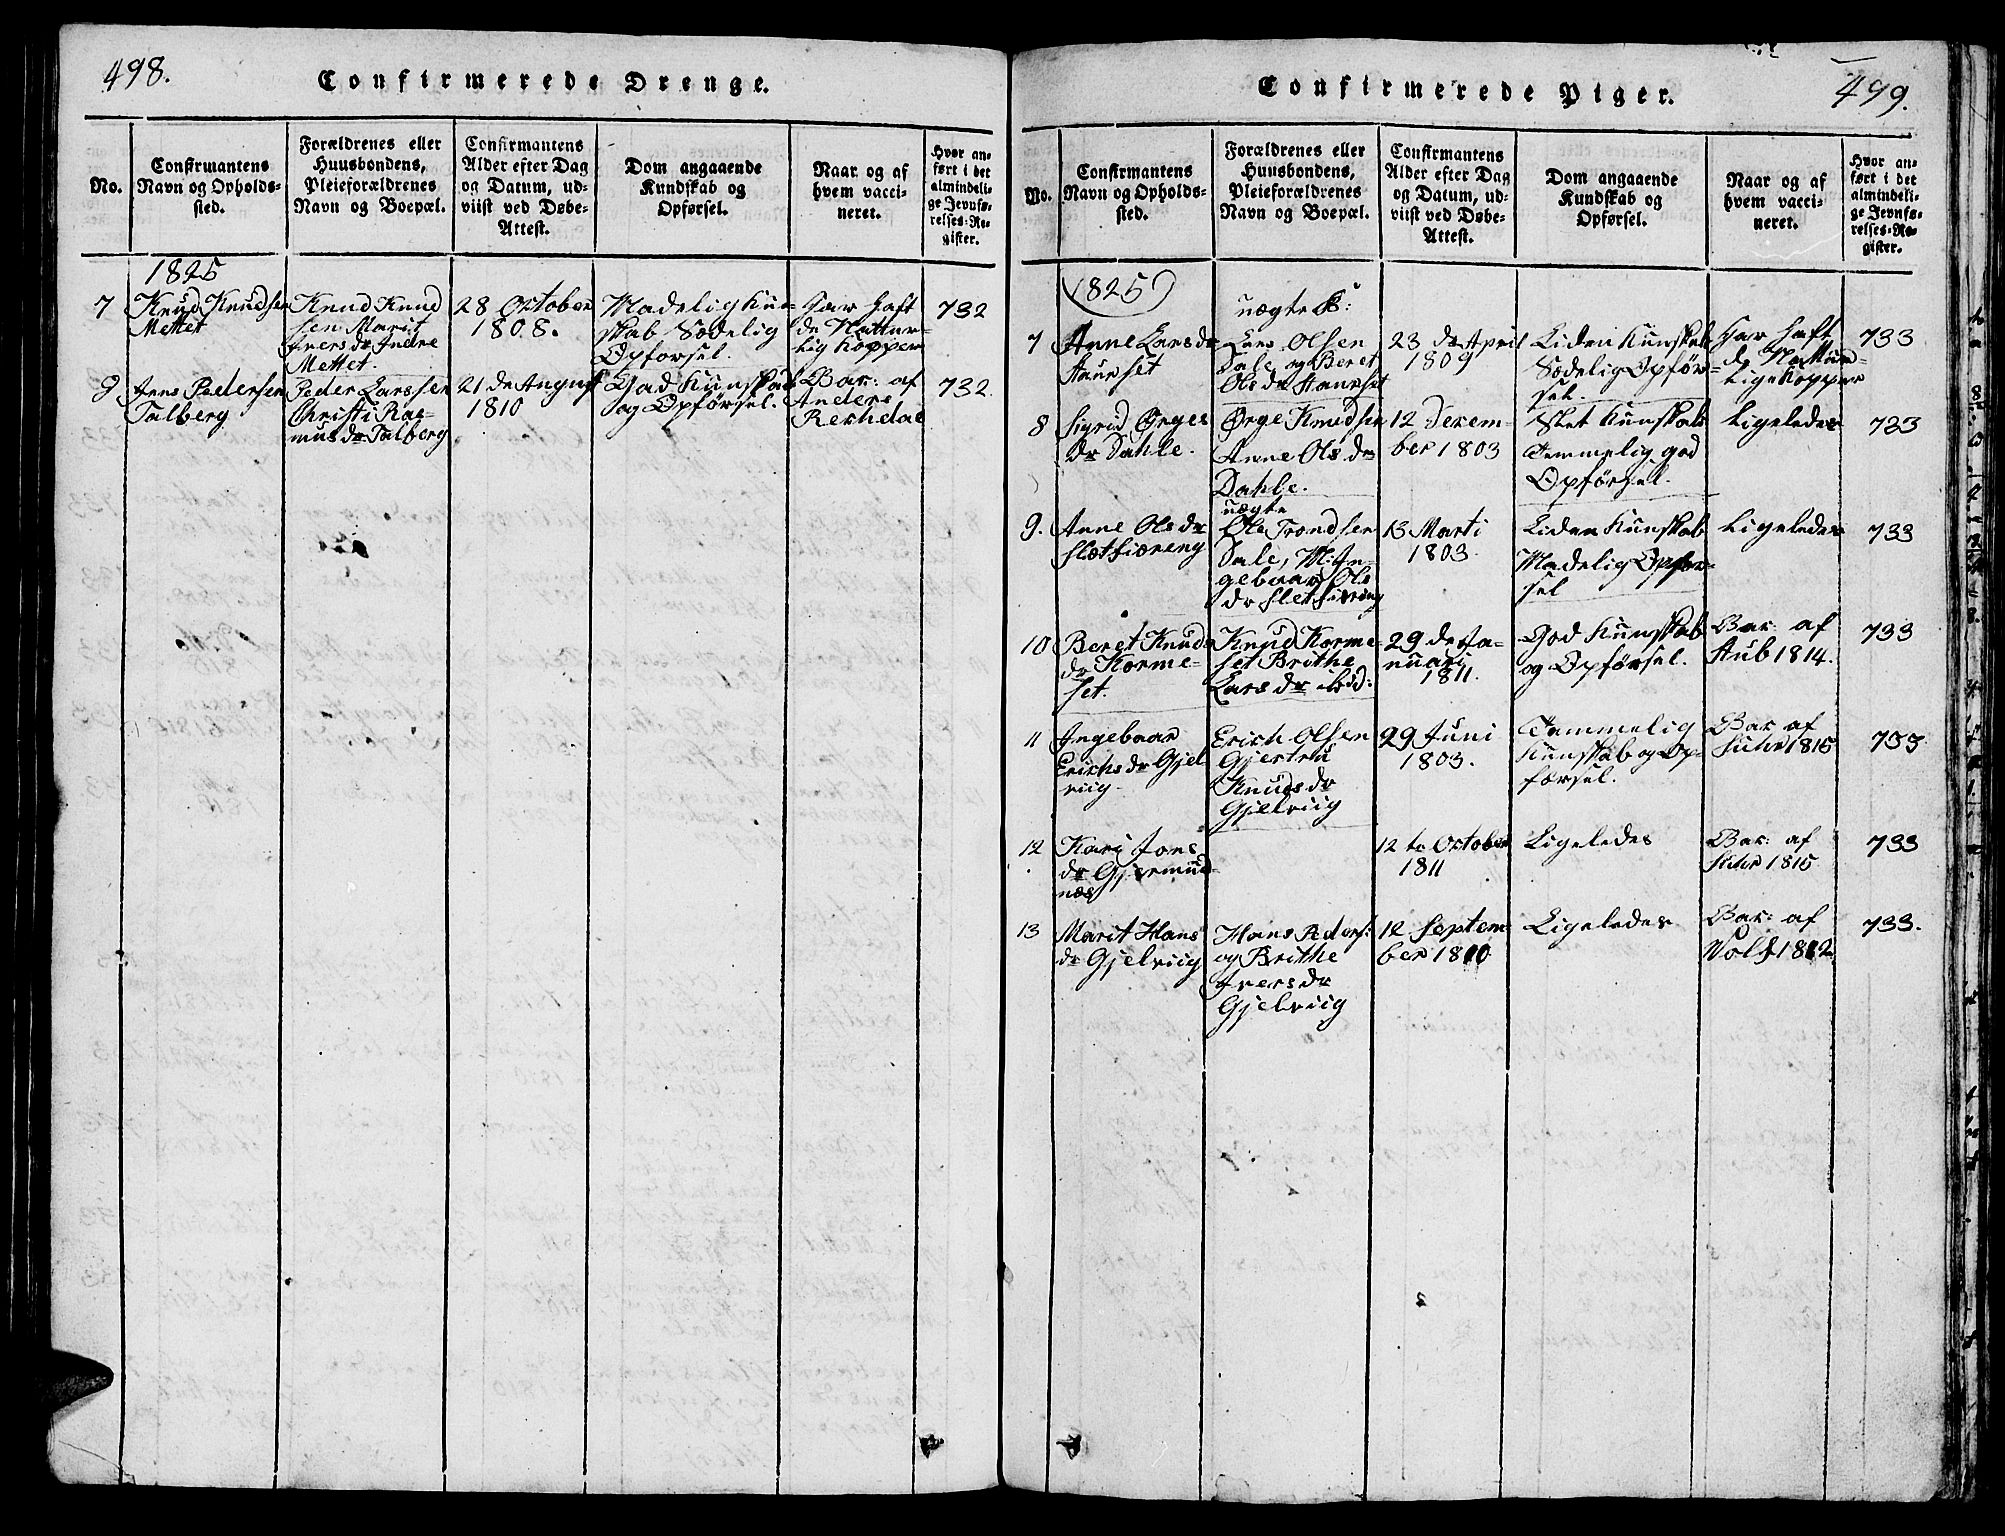 498.
Confirmerede Drenge.
No.
Confirmantens
Navn og Opholds-
sted.
Forældrenes eller
Huusbondens,
Pleieforældrenes
Navn og Boepæl.
Confirmantens
Alder efter Dag
og Datum, ud-
viist ved Døbe-
Attest.
Dom angaaende
Kundskab og
Opførsel.
Naar og af
hvem vacci-
neret.
Hvor an-
ført i det
almindeli-
ge Jevnfø-
relses-Re-
gister.
1825
7
Knud Knudsen
Mettet
Knud Knud
sen Marit
Ivers dr Indre
Mettet.
28 October
1808.
Madelig Kun-
skab Sødelig
Opførsel.
Har haft
de Nattur-
lig Kopper
732
9
Jens Pedersen
Talberg
Peder Larssen
Christi Ras-
mus dr Talberg
21 de August
1810
God Kunskab
og Opførsel.
Bac: af
Anders
Rekdal
732.
499.
Confirmerede Piger.
No.
Confirmantens
Navn og Opholds-
sted.
Forældrenes eller
Huusbondens,
Pleieforældrenes
Navn og Boepæl.
Confirmantens
Alder efter Dag
og Datum, ud-
viist ved Døbe-
Attest.
Dom angaaende
Kundskab og
Opførsel.
Naar og af
hvem vacci-
neret.
Hvor an-
ført i det
almindeli-
ge Jevnfø-
relses-Re-
gister.
(1825)
7
Anne Lars dr
Haurset
uægte B:
Lars Olsen
Dale og Beret
Ols dr Haurset
23 de April
1809
Liden Kunskab
Sødelig Opfør-
sel.
Har haft
de Nattur-
lige Kopper
733
8
Sigrid Ørges
dr Dahle.
Ørge Knudsen
Anne Ols dr
Dahle.
12 Decem-
ber 1803
Slet Kunskab
Temmelig god
Opførsel.
Ligeledes
733
9.
Anne Ols dr
Sletfiæreng
uægte
Ole Trondsen
Dale, M: In-
gebaar Ols
dr Sletfiæring
13 Marti
1803.
Liden Kunskab
Madelig Opfør-
sel
Ligeledes
733
10
Beret Knuds
dr Korme-
set.
Knud Korme-
set Brithe
Lars dr ibid:
29 de Ja-
nuari
1811.
God Kunskab
og Opførsel.
Bac: af
Aub 1814.
733
11
Ingebaar
Erichs dr Gjel
viig.
Erich Olsen
Gjertru
Knuds dr
Gjelviig
29 Juni
1803.
Temmelig
Kunskab og Op-
førsel.
Bac: af
Suhr 1815
733
12
Kari Jons
dr Gjermund-
næs
12 te October
1811
Ligeledes
Bac: af
Suhr 1815
733
13
Marit Hans
dr Gjelviig
Hans Peders:
og Brithe
Ivers dr
Gjelviig
12 Septem
ber 1810
Ligeledes
Bac: af
Wolf 1812
733.